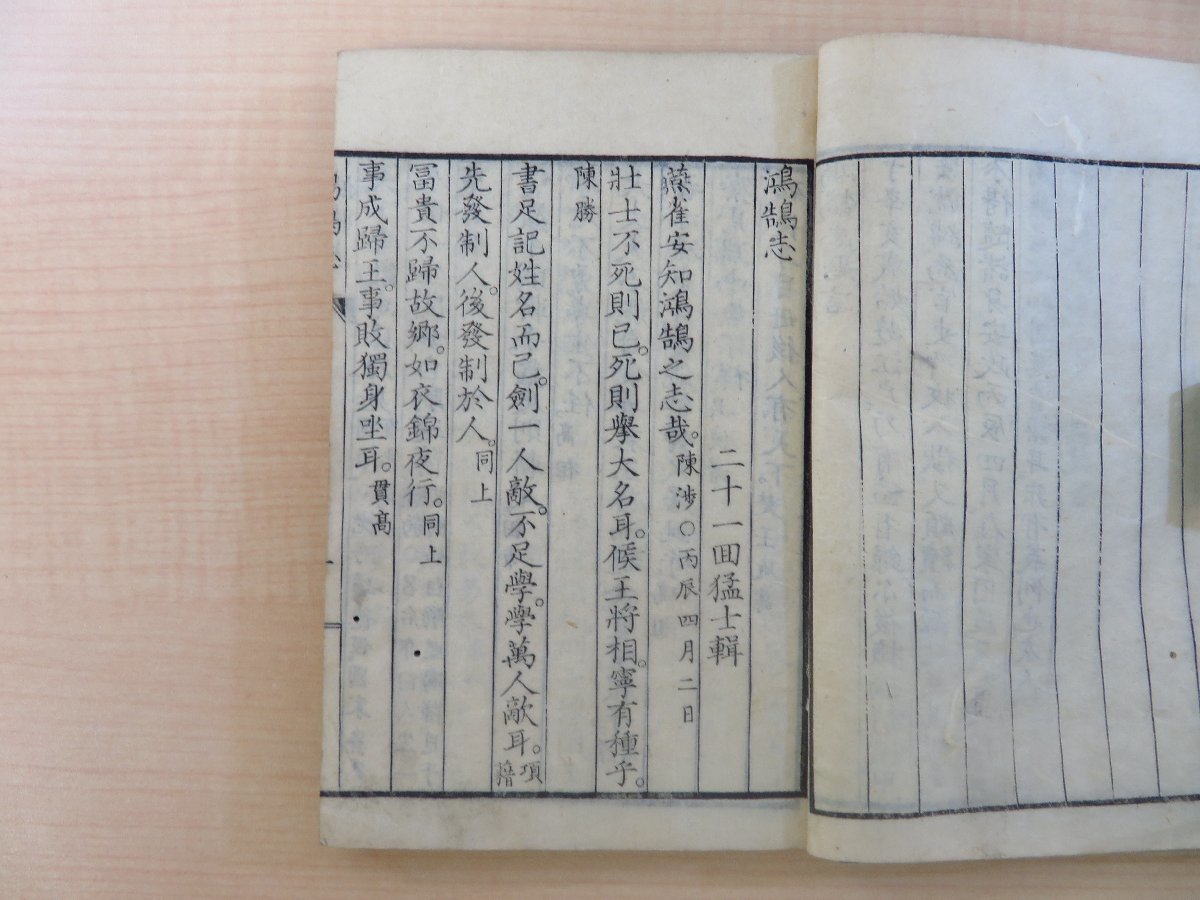 鴻鵠志
二十一回猛士輯
燕雀安知鴻鵠之志哉。陳渉〇丙辰四月二日
壯士不死則已。死則擧大名耳。侯王將相。寧有種乎。
陳勝
書足記姓名而已。劍一人敵。不足學。學萬人敵耳。項籍
先發制人。後發制於人。同上
冨貴不歸故郷。如衣錦夜行。同上
事成歸王。事敗獨身坐耳。貫高
鴻鵠志
一